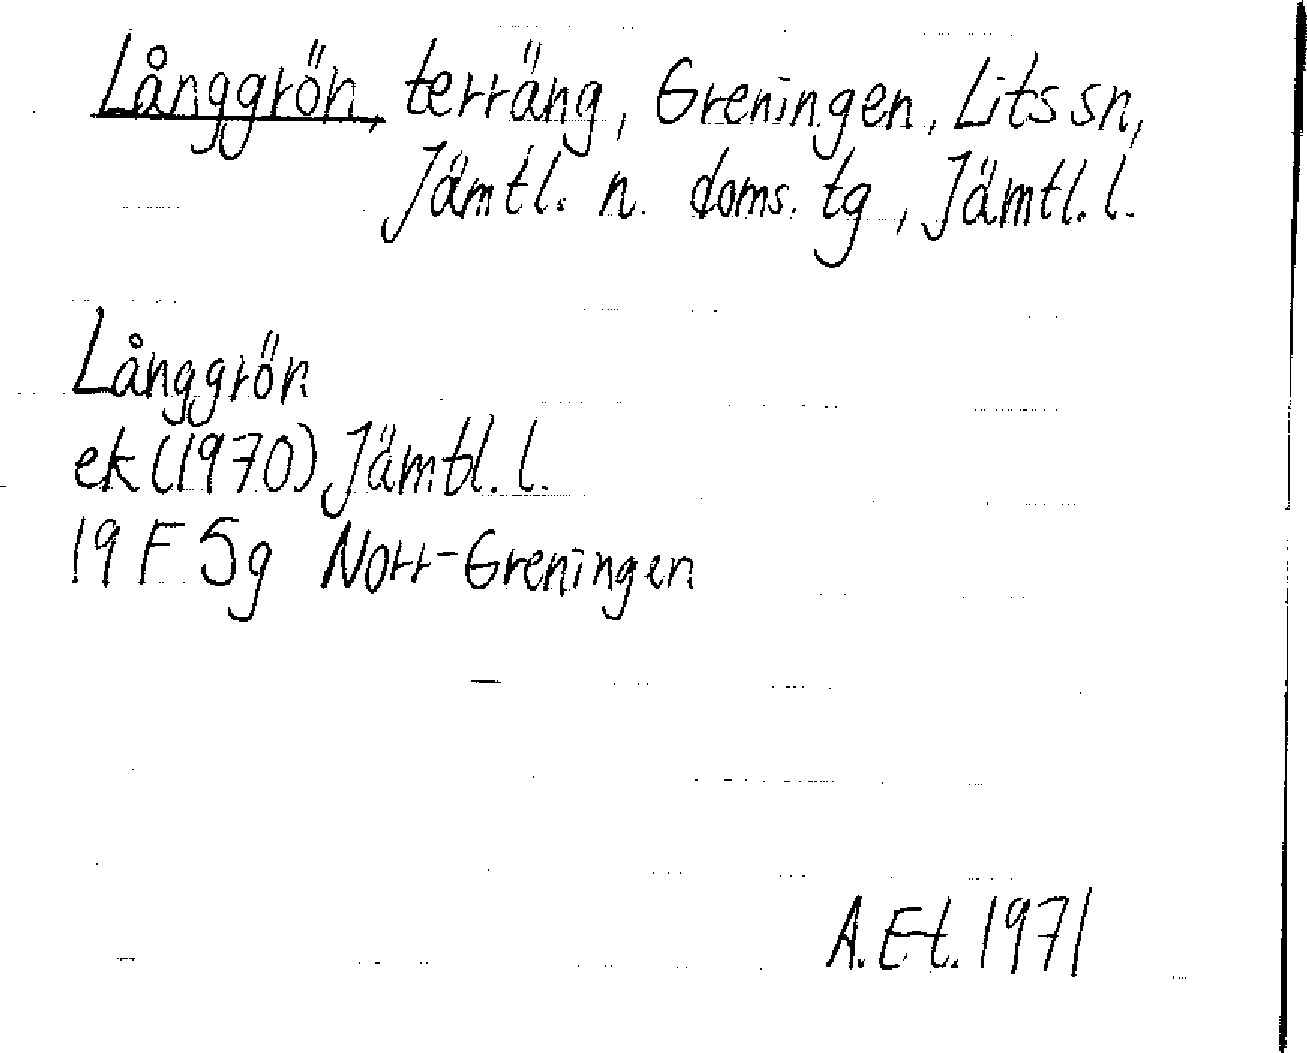 Långgrön, terräng, Greningen, Lits sn,
Jämtl. n. doms. tg, Jämtl. l.
Långgrön
ek (1970) Jämtl. l.
19 F 5g Norr-Greningen
A. Et. 1971